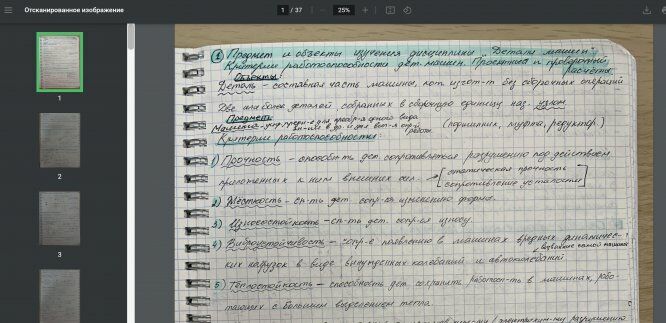 Отсканированное изображение
1 / 37
25%
1
2
3
① Предмет и объекты изучения дисциплины "Детали машин".
Критерии работоспособности дет. машин. Проектный и проверочный
расчёты.
Объекты:
Деталь - составная часть машины, кот. изгот-т без сборочных операций
Две или более деталей собранных в сборочную единицу наз. узлом
Предмет
(подшипник, муфта, редуктор.)
Критерии работоспособности:
1) Прочность - способн-ть дет. сопротивляться разрушению под действием
приложенных к ним внешних сил. → статическая прочность
сопротивление усталости
2) Жёсткость - сп-ть дет. сопр-ся изменению формы.
3) Износостойкость - сп-ть дет. сопр-ся износу.
4) Виброустойчивость - сопр-е появлению в машинах вредных динамичес-
ких нагрузок в виде вынужденных колебаний и автоколебаний
5) Теплостойкость - способность дет. сохранять работосп-ть в машинах, рабо-
тающих с большим выделением тепла.